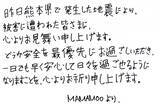 昨日熊本県で発生した地震により、
被害に遭われた皆さまに、
心よりお見舞い申し上げます。
どうか安全を最優先にお過ごしいただき、
一日でも早く安心して日々を過ごせるように
なりますことを、心よりお祈り申し上げます。
MAMAMOOより.